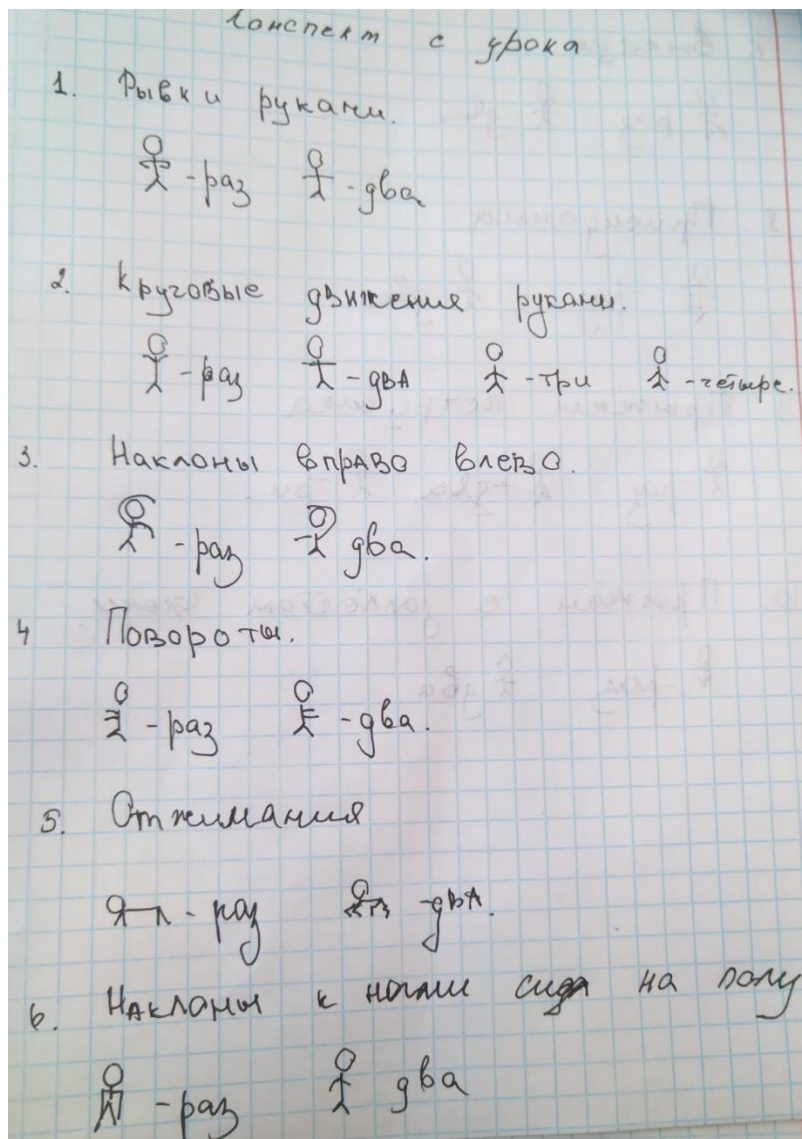 Конспект с урока
1. Рывки руками.
-раз -два
2. Круговые движения руками.
-раз -двА -три -четыре.
3. Наклоны вправо влево.
-раз два.
4 Повороты.
-раз -два.
5. Отжимания
-раз -двА.
6. НАклоны к ногам сидя на полу
-раз два